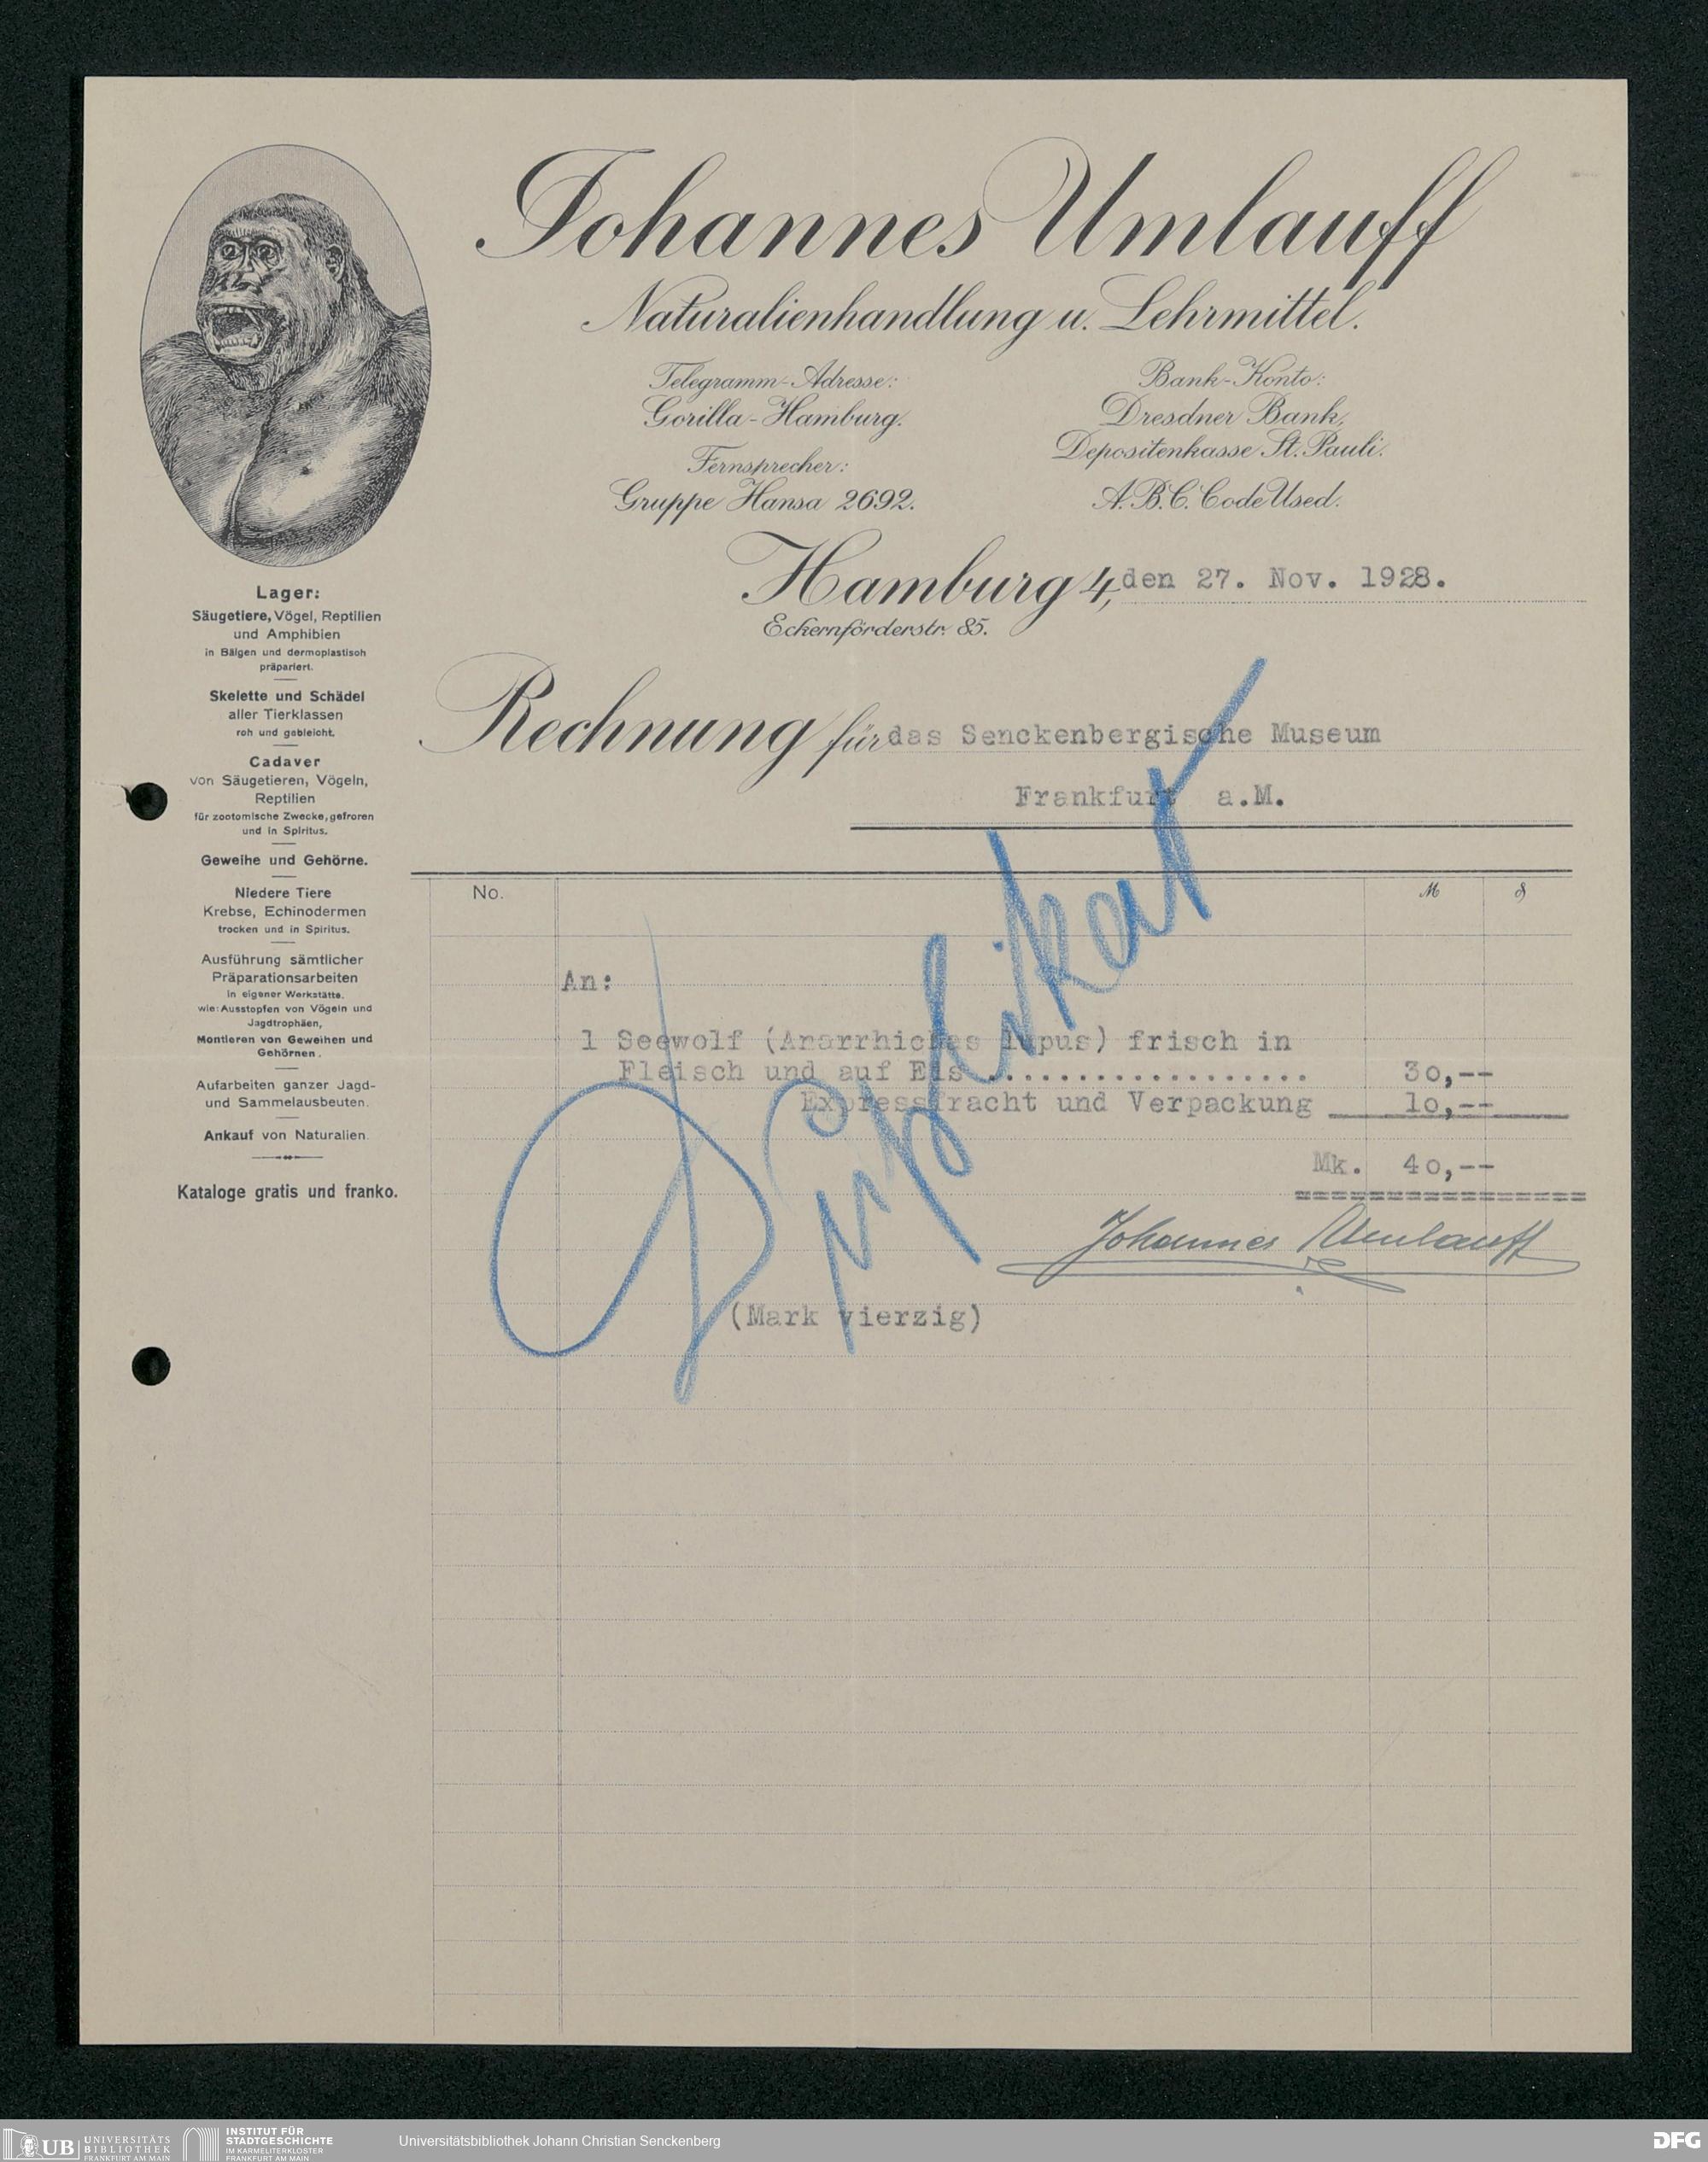 Johannes Umlauff
Naturalienhandlung u. Lehrmittel.
Telegramm-Adresse:
Gorilla-Hamburg.
Fernsprecher:
Gruppe Hansa 2692.
Bank-Konto:
Dresdner Bank,
Depositenkasse St. Pauli.
A.B.C. Code Used.
Hamburg 4, den 27. Nov. 1928.
Eckernförderstr. 85.
Lager:
Säugetiere, Vögel, Reptilien
und Amphibien
in Bälgen und dermoplastisch
präpariert.
Skelette und Schädel
aller Tierklassen
roh und gebleicht.
Cadaver
von Säugetieren, Vögeln,
Reptilien
für zootomische Zwecke, gefroren
und in Spiritus.
Geweihe und Gehörne.
Niedere Tiere
Krebse, Echinodermen
trocken und in Spiritus.
Ausführung sämtlicher
Präparationsarbeiten
in eigener Werkstätte.
wie: Ausstopfen von Vögeln und
Jagdtrophäen,
Montieren von Geweihen und
Gehörnen.
Aufarbeiten ganzer Jagd-
und Sammelausbeuten.
Ankauf von Naturalien.
Kataloge gratis und franko.
Rechnung für das Senckenbergische Museum
Frankfurt a.M.
No. M ₰
An:
1 Seewolf (Anarrhichas lupus) frisch in
Fleisch und auf Eis .................. 30,--
Expressfracht und Verpackung 10,--
Mk. 40,--
Johannes Umlauff
(Mark vierzig)
Duplikat
UB UNIVERSITÄTS
BIBLIOTHEK
FRANKFURT AM MAIN
INSTITUT FÜR
STADTGESCHICHTE
IM KARMELITERKLOSTER
FRANKFURT AM MAIN
Universitätsbibliothek Johann Christian Senckenberg
DFG